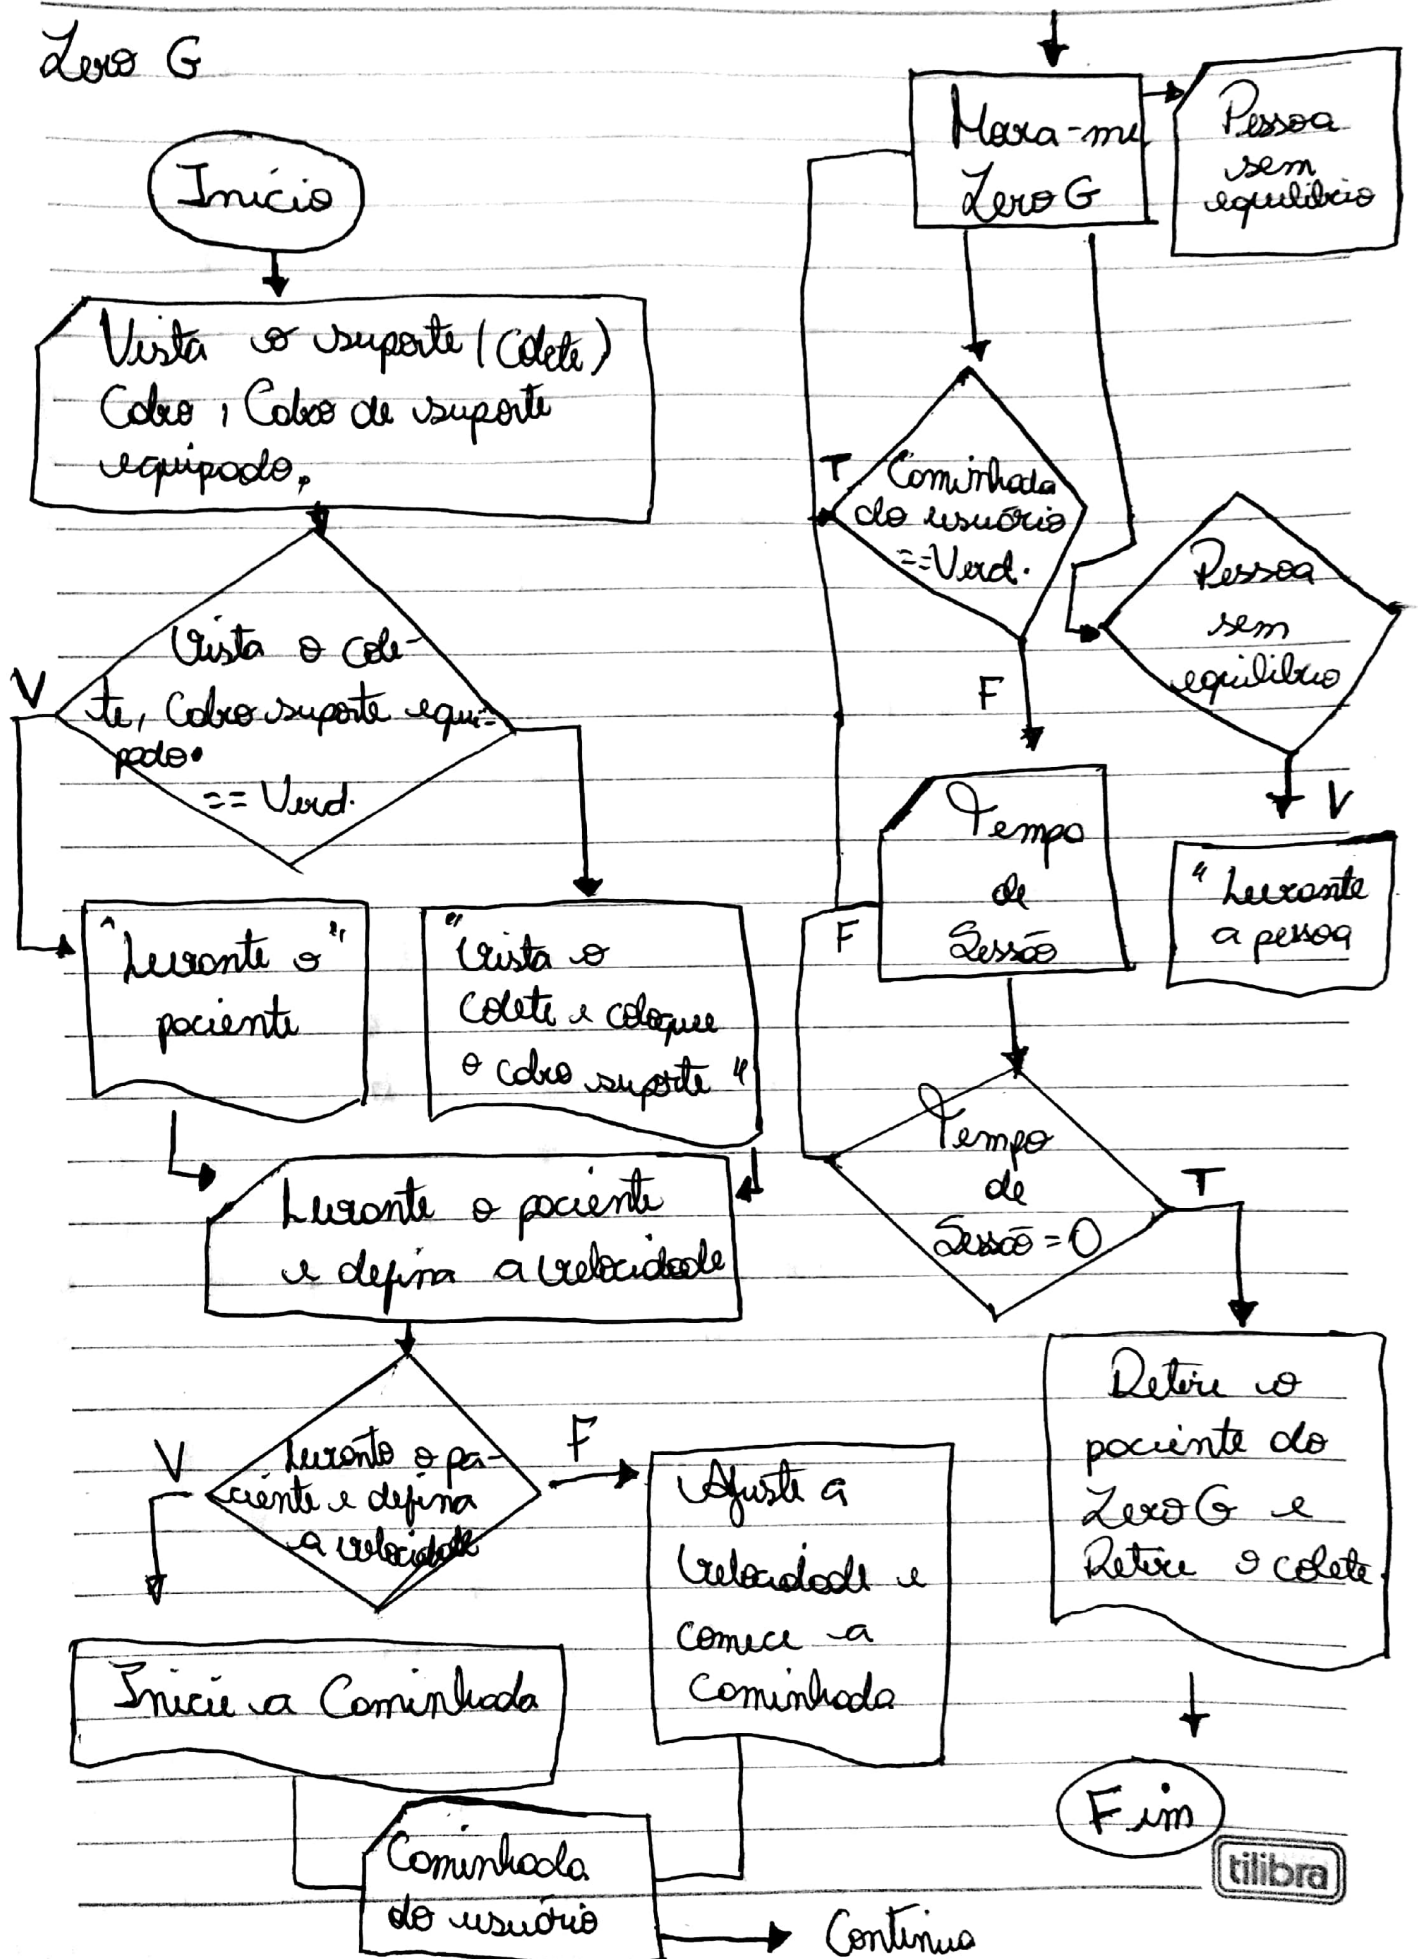 Zero G
Início
Vista o suporte (Colete)
Cabo, Cabo de suporte
equipado.
Vista o cole-
te, Cabo suporte equi-
pado.
== Verd.
V
"Levante o"
paciente
"Vista o
colete e coloque
o cabo suporte"
Levante o paciente
e defina a velocidade
Levante o pa-
ciente e defina
a velocidade
V
F
Ajuste a
velocidade e
comece a
caminhada
Inicie a Caminhada
Caminhada
do usuário
Continua
Zero G
Pessoa
sem
equilíbrio
T
Caminhada
do usuário
==Verd.
F
Pessoa
sem
equilíbrio
V
"Levante
a pessoa
Tempo
de
Sessão
F
Tempo
de
Sessão = 0
T
Retire o
paciente do
Zero G e
Retire o colete.
Fim
tilibra